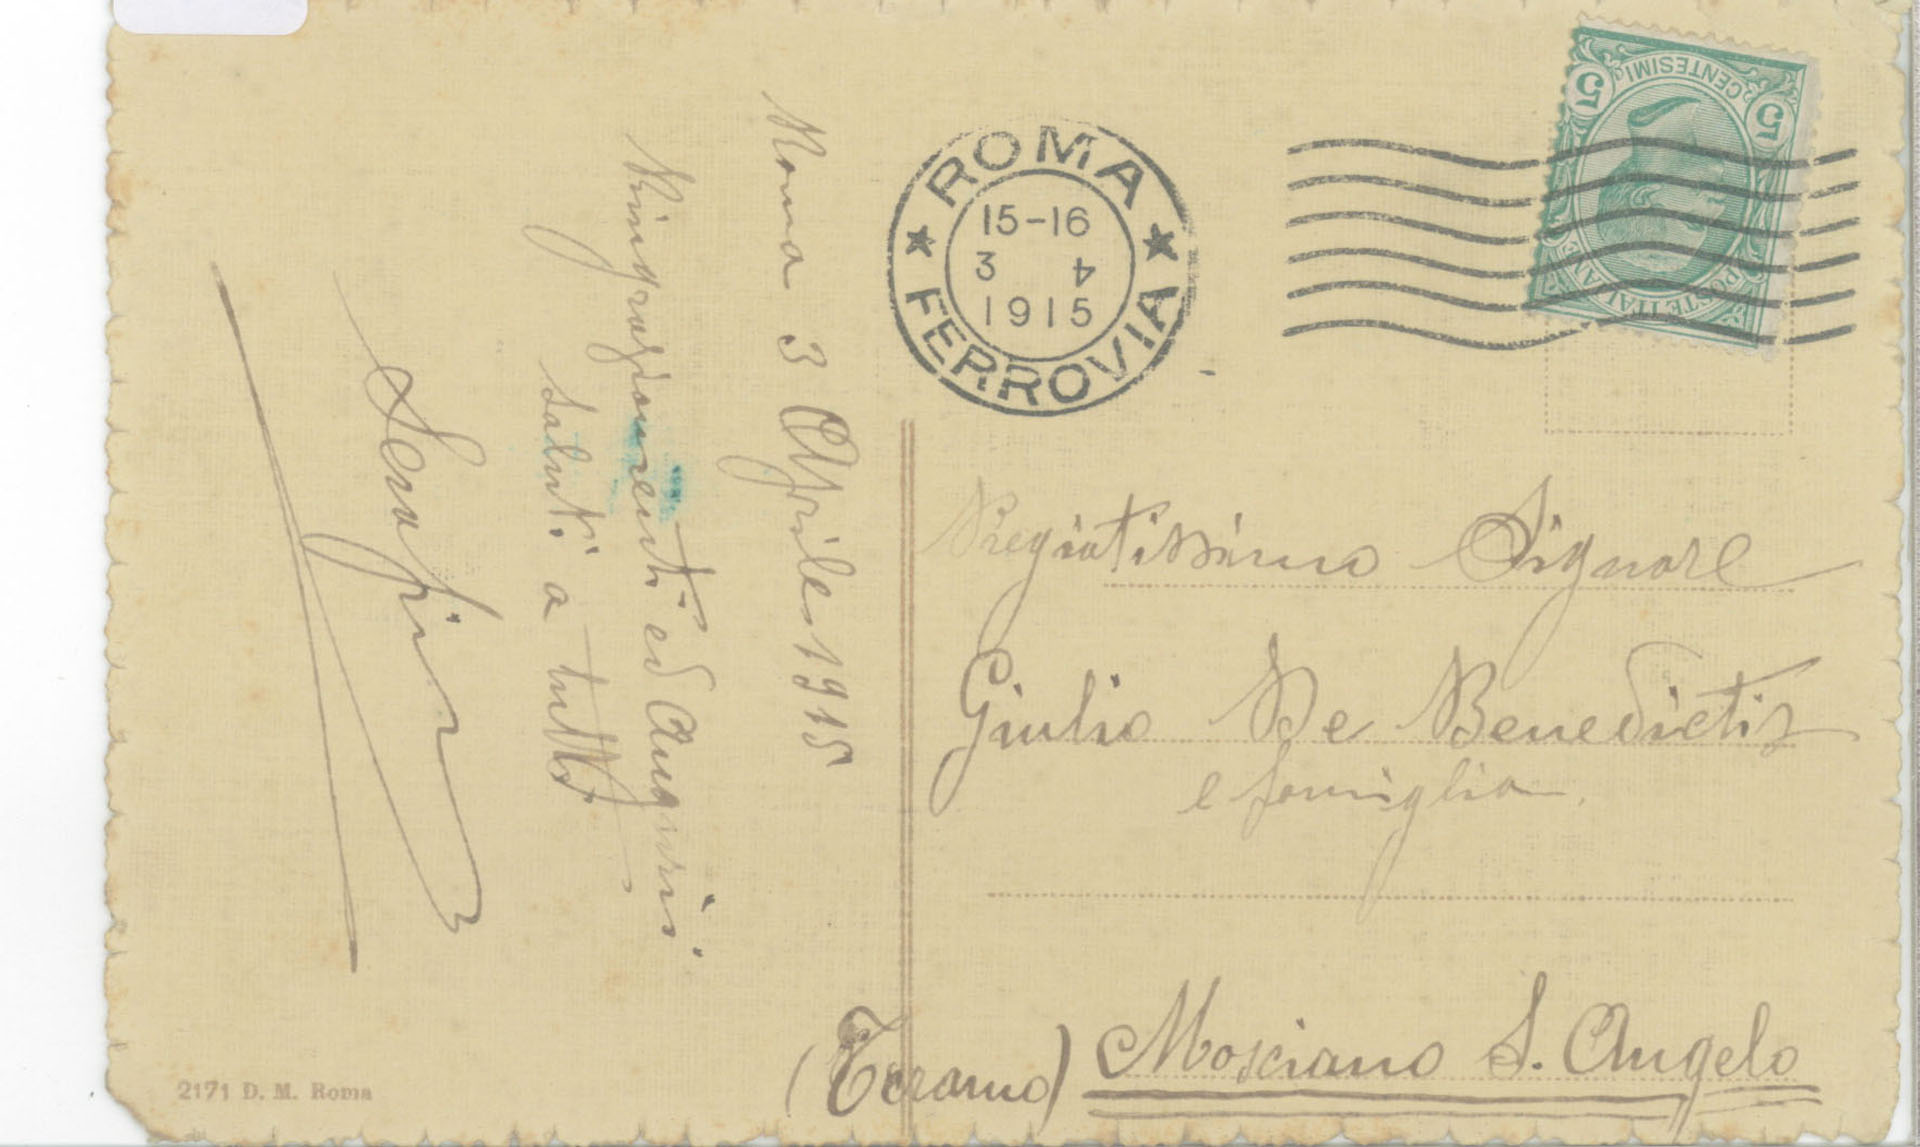 Roma 3 Aprile 1915
Ringraziamenti ed Auguri
Saluti a tutti
Serafino
ROMA
15-16
3 4
1915
FERROVIA
5 CENTESIMI 5
POSTE ITALIANE
Pregiatissimo Signore
Giulio De Benedictis
e famiglia.
(Teramo) Mosciano S. Angelo
2171 D. M. Roma